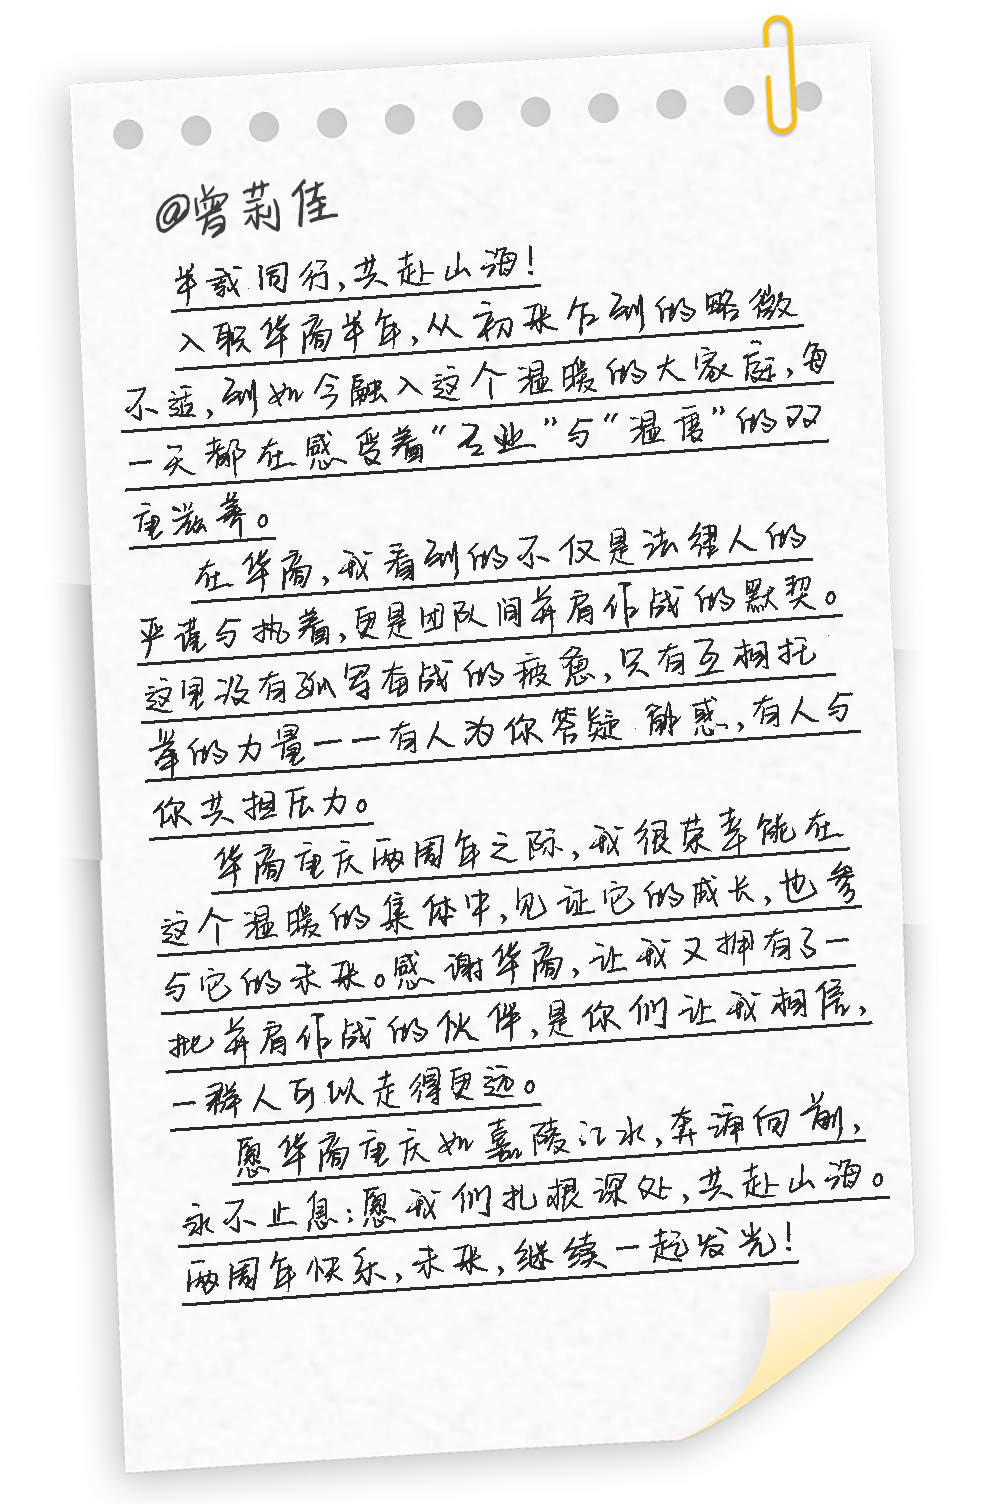 @曾莉佳
半载同行,共赴山海!
入职华商半年,从初来乍到的略微
不适,到如今融入这个温暖的大家庭,每
一天都在感受着“专业”与“温度”的双
重滋养。
在华商,我看到的不仅是法律人的
严谨与执着,更是团队间并肩作战的默契。
这里没有孤军奋战的疲惫,只有互相托
举的力量——有人为你答疑解惑,有人与
你共担压力。
华商重庆两周年之际,我很荣幸能在
这个温暖的集体中,见证它的成长,也参
与它的未来。感谢华商,让我又拥有了一
批并肩作战的伙伴,是你们让我相信,
一群人可以走得更远。
愿华商重庆如嘉陵江水,奔涌向前,
永不止息;愿我们扎根深处,共赴山海。
两周年快乐,未来,继续一起发光!